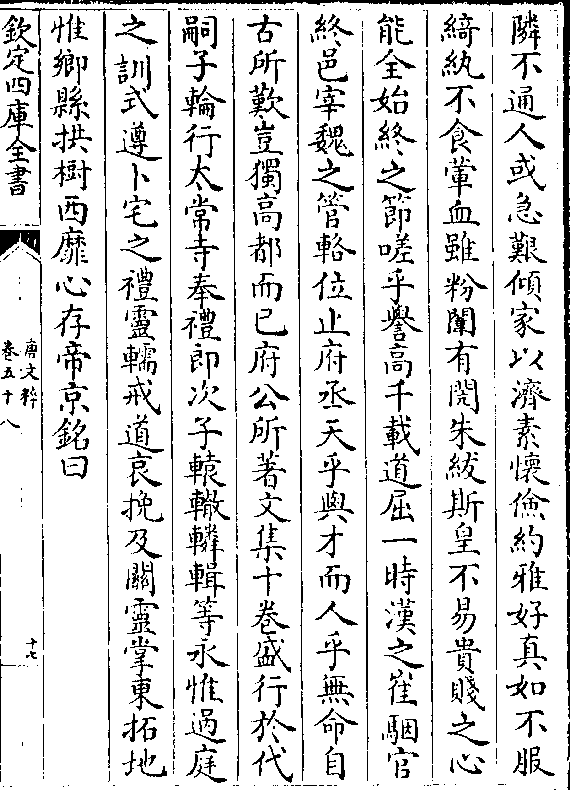 隣不通人或急艱傾家以濟素懷儉約雅好真如不服
綺紈不食葷血雖粉闈有閱朱紱斯皇不易貴賤之心
能全始終之節嗟乎譽高千載道屈一時漢之崔駰官
終邑宰魏之管輅位止府丞天乎與才而人乎無命自
古所歎豈獨高都而已府公所著文集十卷盛行於代
嗣子輪行太常寺奉禮即次子轅轍轔輯等永惟過庭
之訓式遵卜宅之禮靈轜戒道哀挽及關靈掌東拓地
惟鄉縣拱樹西靡心存帝京銘曰
欽定四庫全書
唐文粹
卷五十八
十七